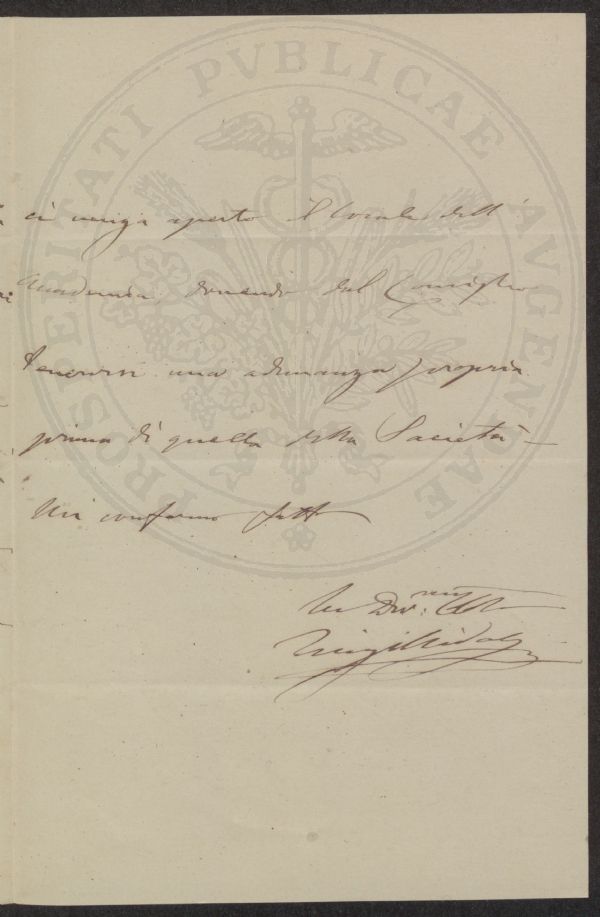 PROSPERITATI PVBLICAE AVGENDAE
ci venga aperto il locale dell'
Accademia dovendo dal Consiglio
tenervisi una adunanza propria
prima di quella della Società –
Mi confermo
Suo Dev.mo